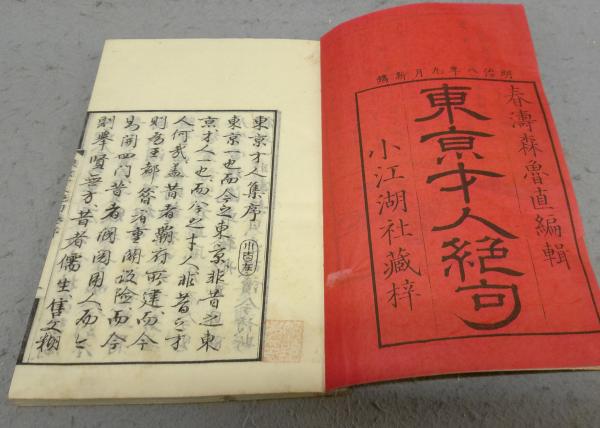 明治八年九月新鐫
春濤森魯直編輯
東京才人絶句
小江湖社藏梓
東京才人集序
東京一也而今之東京非昔之東
京才人一也而今之才人非昔之才
人何哉蓋昔者覇府所建而今
則爲王都昔者重關設險而今
易開四門昔者閥閲用人而今
則擧賢無方昔者儒生 文糊